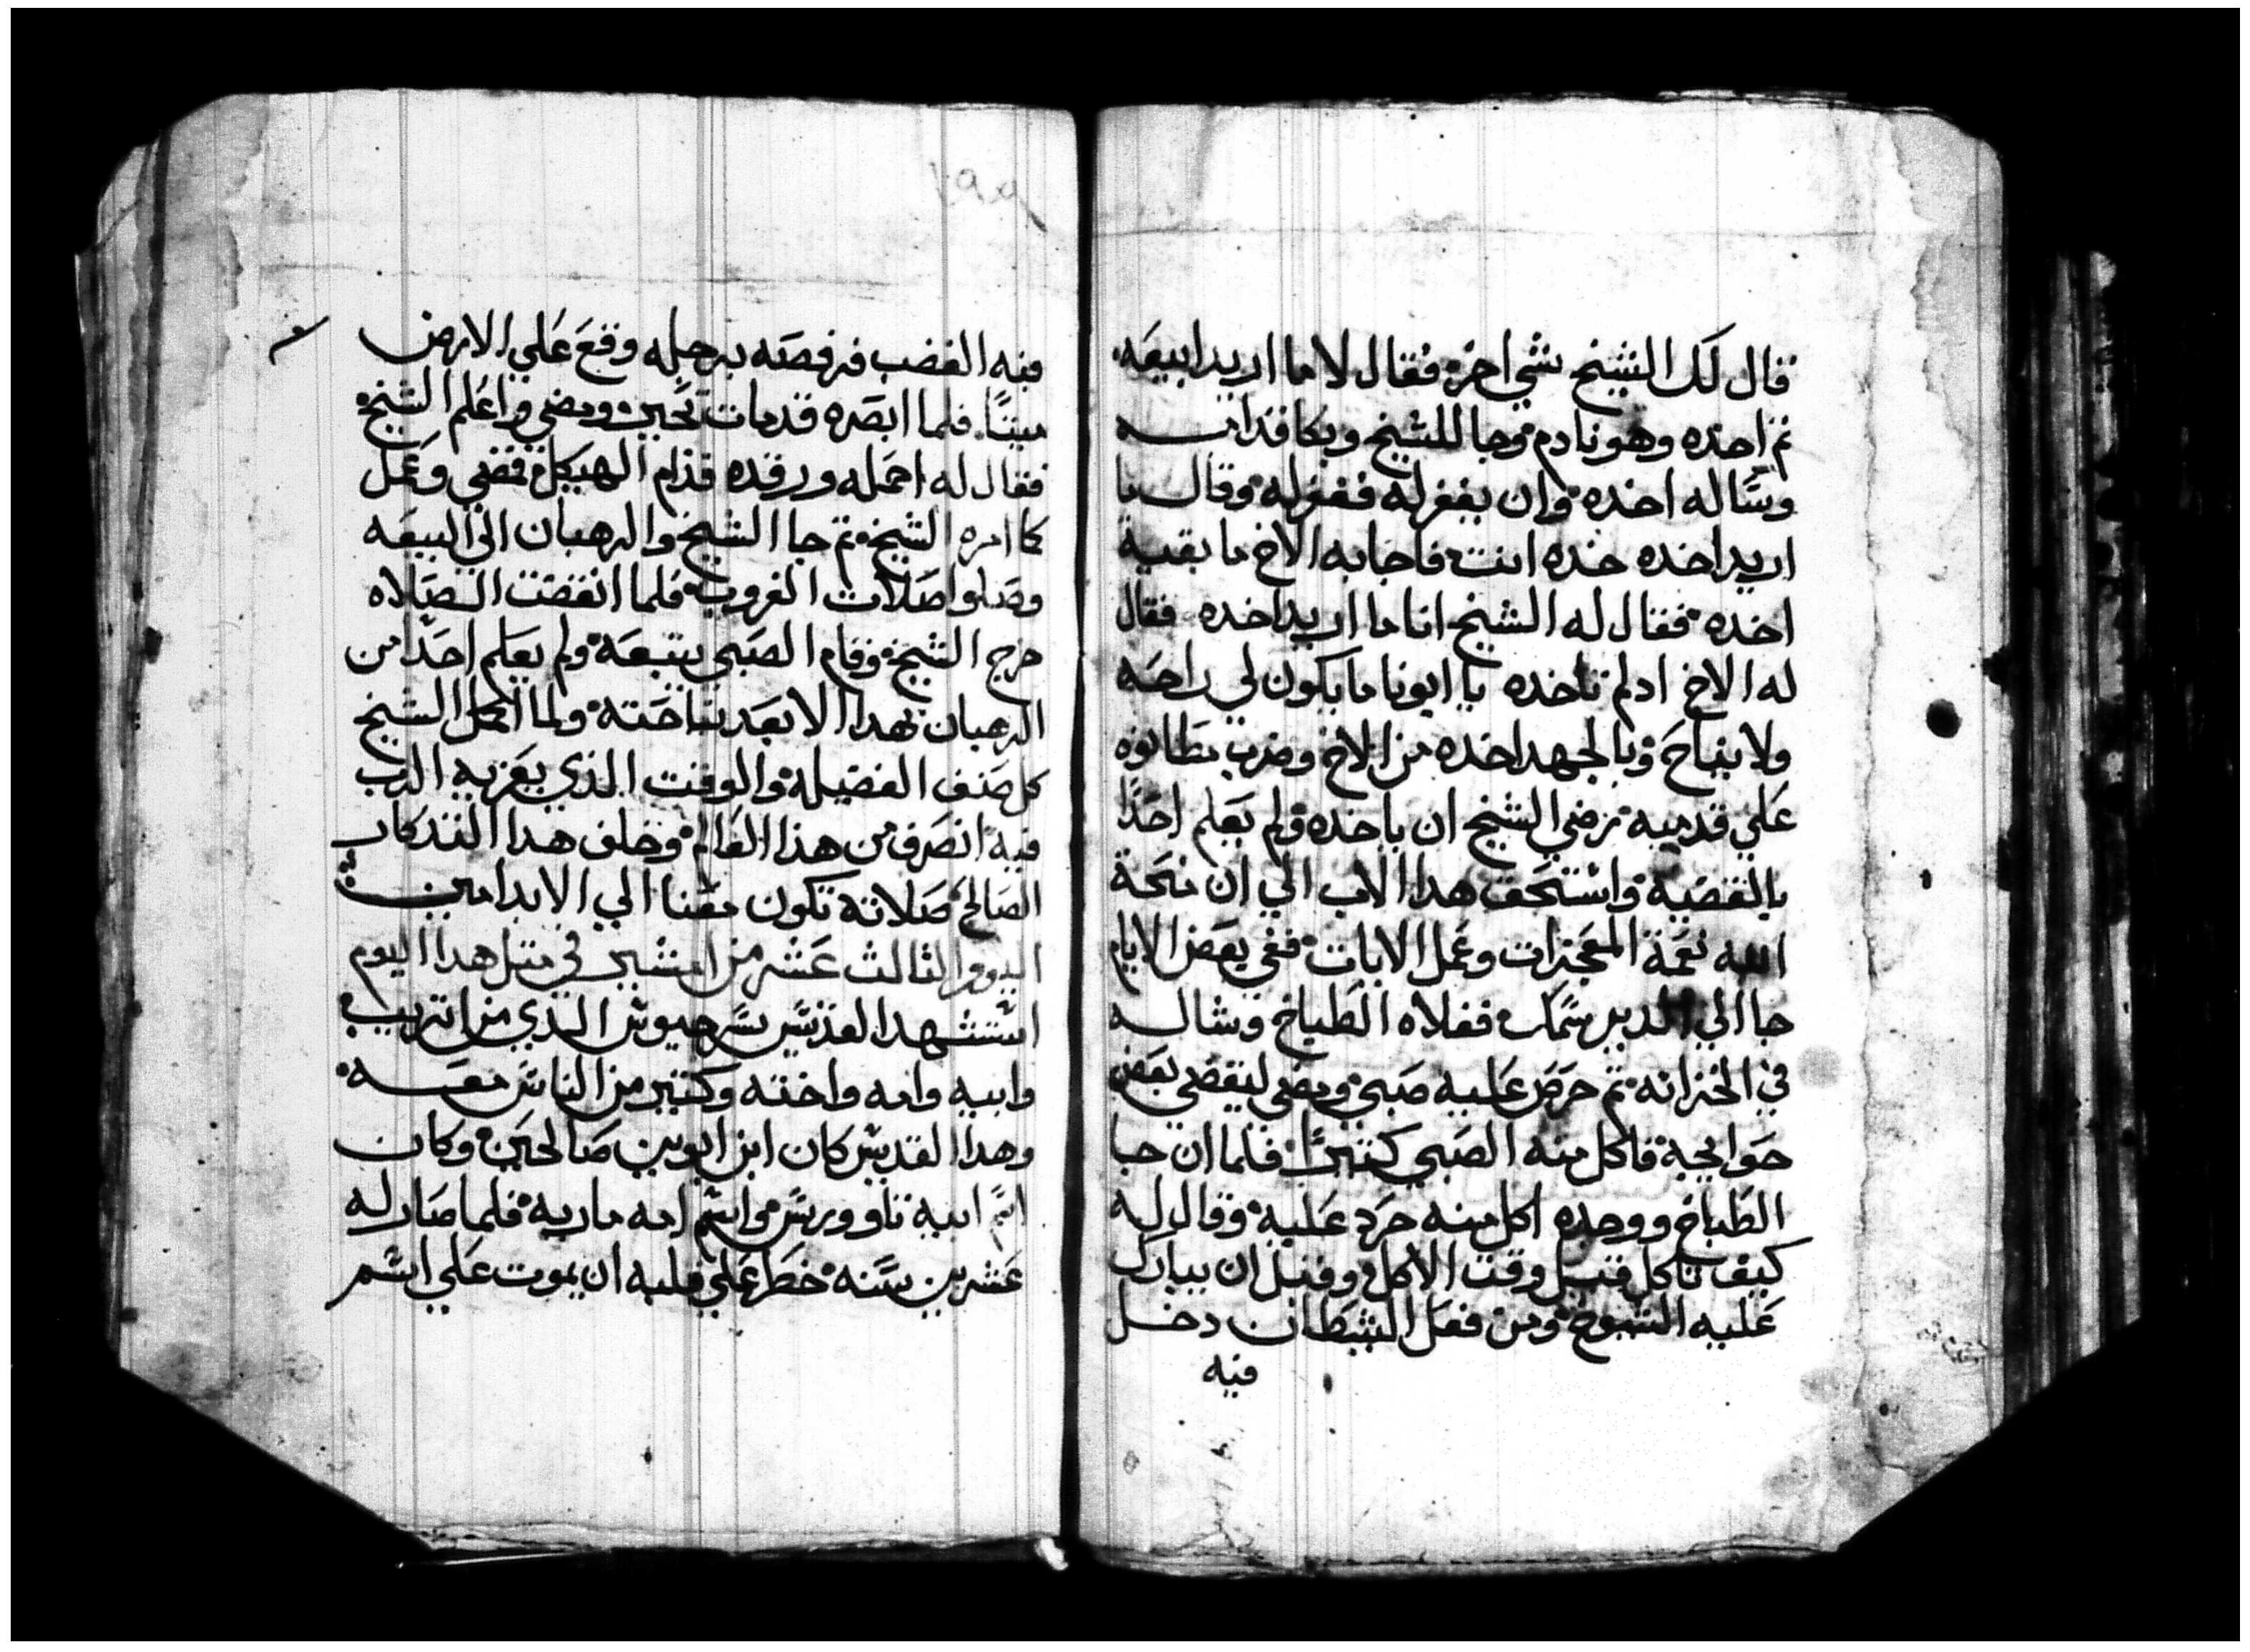 قال لك الشيخ شي اخر؟ فقال لا ما اريد ابيعه
ثم اخده وهو نادم وجا للشيخ وبكا قدامه
وساله اخده وان يغفر له فغفر له وقال ما
اريد اخده خده انت فاجابه الاخ ما بقيه
اخده فقال له الشيخ انا ما اريد اخده فقال
له الاخ ادلم تاخده يا ابونا ما يكون لي راحه
ولا بنياح وبالجهد اخده من الاخ وضرب مطانوه
علي قدميه ورضي الشيخ ان ياخده ولم يعلم احدًا
بالقضيه واستحق هدا الاب الي ان منحه
الله نعمة المعجزات وعمل الايات ففي بعض الايام
جا الي الدير سمك فقلاه الطباخ وشاله
في الخزانه ثم حرص عليه صبي ومضي ليقضي بعض
حوايجه فاكل منه الصبي كتيرًا فلما ان جا
الطباخ ووجده اكل منه حرد عليه وقال له
كيف تاكل قبل وقت الاكل وقبل ان يبارك
عليه الشيوخ ومن فعل الشيطان دخل
فيه
١٩٩
فيه الغضب فرفصه برجله وقع علي الارض
ميتًا فلما ابصره قد مات تحير ومضي واعلم الشيخ
فقال له احمله ورقده قدام الهيكل فمضي وعمل
كما امره الشيخ ثم جا الشيخ والرهبان الي البيعه
وصلوا صلات الغروب فلما انقضت الصلاه
خرج الشيخ وقام الصبي يتبعه ولم يعلم احدًا من
الرهبان بهدا الا بعد نياحته ولما اكمل الشيخ
كل صنف الفضيله والوقت الذي يعزيه الرب
فيه انصرف من هذا العالم وخلف هدا التدكار
الصالح صلاته تكون معنا الي الابد امين
اليوم الثالث عشر من امشير في متل هدا اليوم
استشهد القديس سرجيوس الذي من اتريب
وابيه وامه واخته وكتير من الناس معه
وهدا القديس كان ابن ابوين صالحين وكان
اسم ابيه تاوورس واسم امه ماريه فلما صار له
عشرين سنه خطر علي قلبه ان يموت علي اسم